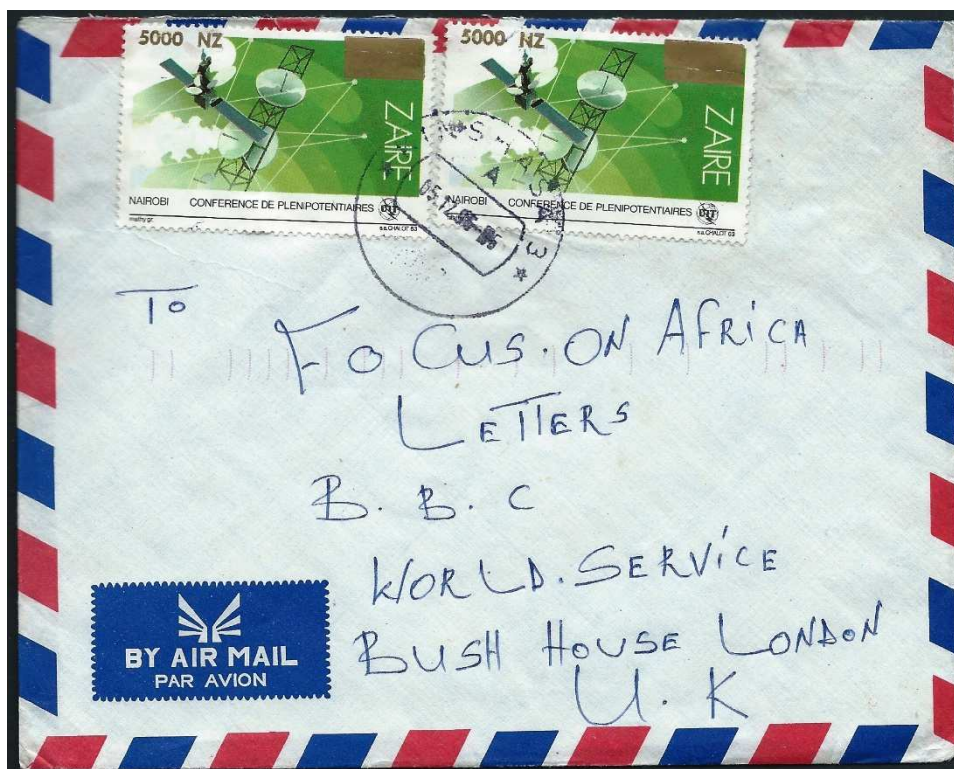 5000 NZ
ZAIRE
NAIROBI CONFERENCE DE PLENIPOTENTIAIRES UIT
mathy gr. s.a. CHALOT 83
5000 NZ
ZAIRE
NAIROBI CONFERENCE DE PLENIPOTENTIAIRES UIT
s.a. CHALOT 83
A
3
To
FOCUS.ON AFRICA
LETTERS
B. B. C
WORLD.SERVICE
BUSH HOUSE LONDON
U.K
BY AIR MAIL
PAR AVION